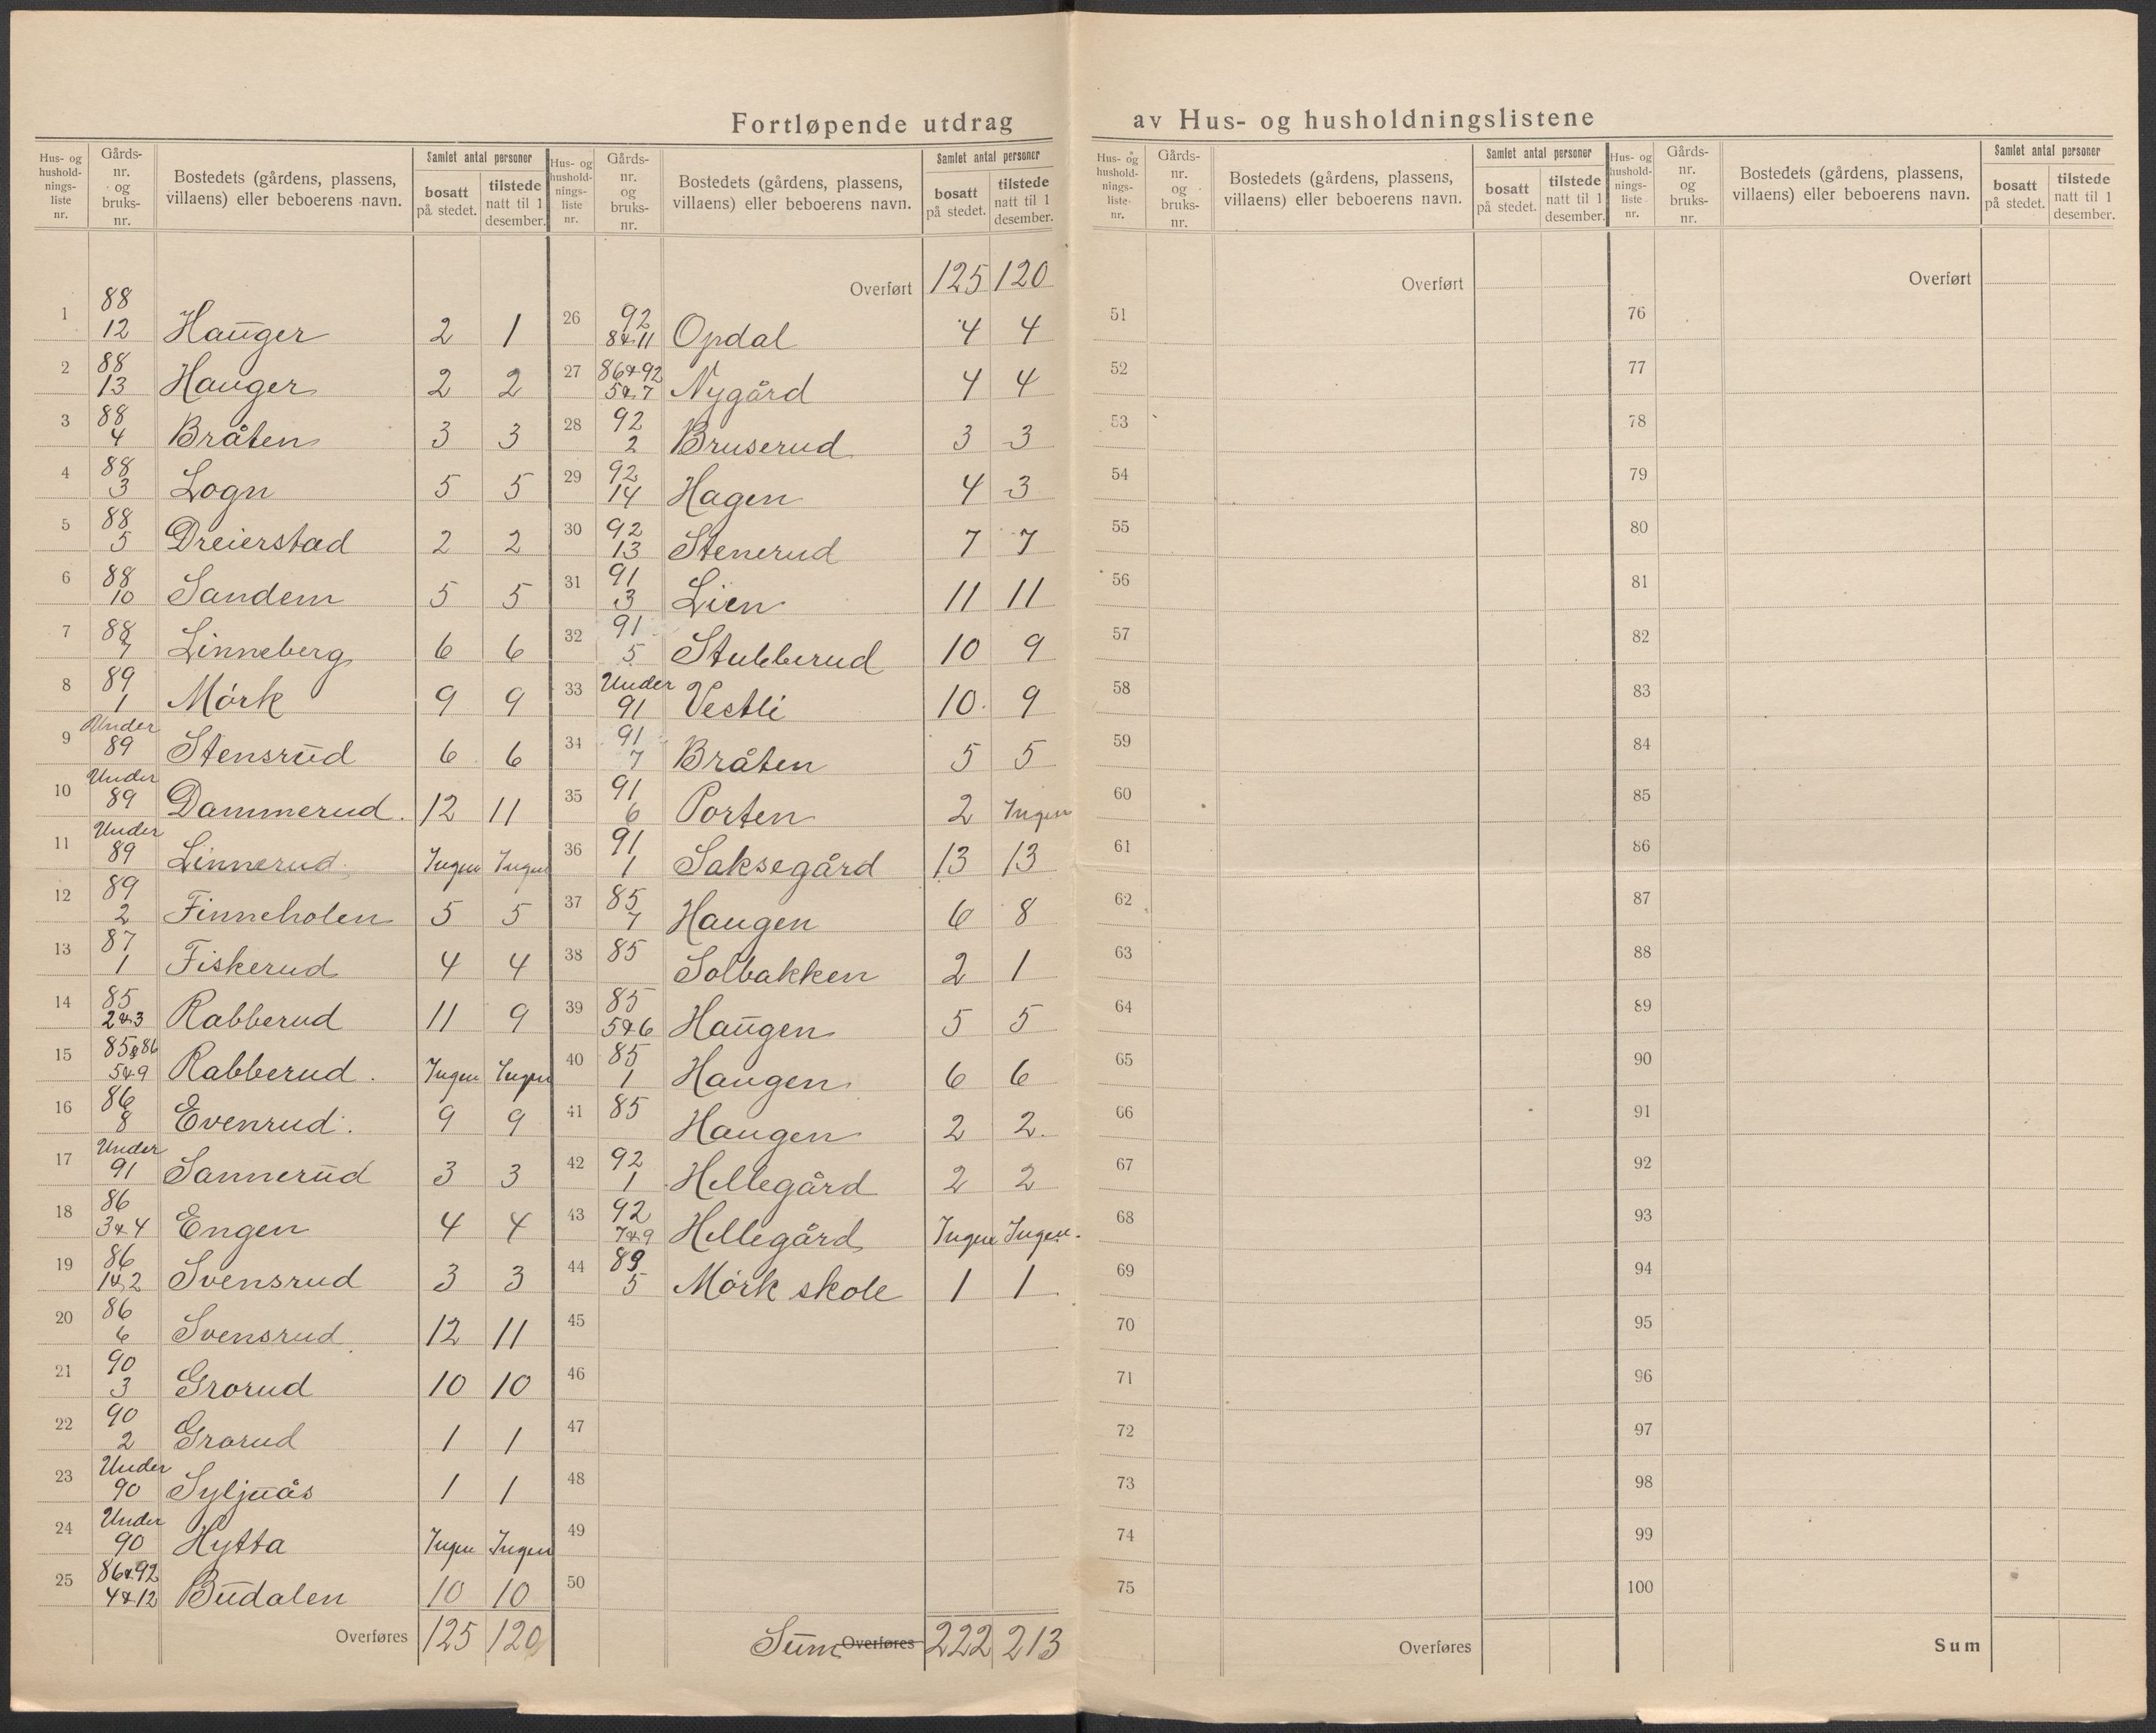 Fortløpende utdrag av Hus- og husholdningslistene
Hus- og husholdnings-liste nr. | Gårds-nr. og bruks-nr. | Bostedets (gårdens, plassens, villaens) eller beboerens navn. | Samlet antal personer | bosatt på stedet. | tilstede natt til 1 desember.
1 | 88 12 | Hauger | 2 | 1
2 | 88 13 | Hauger | 2 | 2
3 | 88 4 | Bråten | 3 | 3
4 | 88 3 | Logn | 5 | 5
5 | 88 5 | Dreierstad | 2 | 2
6 | 88 10 | Sandem | 5 | 5
7 | 88 7 | Linneberg | 6 | 6
8 | 89 1 | Mörk | 9 | 9
9 | Under 89 | Stensrud | 6 | 6
10 | Under 89 | Dammerud. | 12 | 11
11 | Under 89 | Linnerud | Ingen | Ingen
12 | 89 2 | Finneholen | 5 | 5
13 | 87 1 | Fiskerud | 4 | 4
14 | 85 2&3 | Rabberud | 11 | 9
15 | 85&86 5&9 | Rabberud. | Ingen | Ingen
16 | 86 8 | Evenrud. | 9 | 9
17 | Under 91 | Sannerud | 3 | 3
18 | 86 3&4 | Engen | 4 | 4
19 | 86 1&2 | Svensrud | 3 | 3
20 | 86 6 | Svensrud | 12 | 11
21 | 90 3 | Grorud | 10 | 10
22 | 90 2 | Grorud | 1 | 1
23 | Under 90 | Syljuås | 1 | 1
24 | Under 90 | Hytta | Ingen | Ingen
25 | 86&92 4&12 | Budalen | 10 | 10
Overføres | 125 | 120
Hus- og husholdnings-liste nr. | Gårds-nr. og bruks-nr. | Bostedets (gårdens, plassens, villaens) eller beboerens navn. | Samlet antal personer | bosatt på stedet. | tilstede natt til 1 desember.
Overført | 125 | 120
26 | 92 8&11 | Opdal | 4 | 4
27 | 86&92 5&7 | Nygård | 4 | 4
28 | 92 2 | Bruserud | 3 | 3
29 | 92 14 | Hagen | 4 | 3
30 | 92 13 | Stenerud | 7 | 7
31 | 91 3 | Lien | 11 | 11
32 | 91 5 | Stubberud | 10 | 9
33 | Under 91 | Vestli | 10. | 9
34 | 91 7 | Bråten | 5 | 5
35 | 91 6 | Porten | 2 | Ingen
36 | 91 1 | Saksegård | 13 | 13
37 | 85 7 | Haugen | 6 | 8
38 | 85 | Solbakken | 2 | 1
39 | 85 5&6 | Haugen | 5 | 5
40 | 85 1 | Haugen | 6 | 6
41 | 85 | Haugen | 2 | 2.
42 | 92 1 | Hellegård | 2 | 2
43 | 92 7&9 | Hellegård | Ingen | Ingen.
44 | 89 5 | Mörk skole | 1 | 1
45
46
47
48
49
50
Sum Overføres | 222 | 213
Hus- og husholdnings-liste nr. | Gårds-nr. og bruks-nr. | Bostedets (gårdens, plassens, villaens) eller beboerens navn. | Samlet antal personer | bosatt på stedet. | tilstede natt til 1 desember.
Overført
51
52
53
54
55
56
57
58
59
60
61
62
63
64
65
66
67
68
69
70
71
72
73
74
75
Overføres
Hus- og husholdnings-liste nr. | Gårds-nr. og bruks-nr. | Bostedets (gårdens, plassens, villaens) eller beboerens navn. | Samlet antal personer | bosatt på stedet. | tilstede natt til 1 desember.
Overført
76
77
78
79
80
81
82
83
84
85
86
87
88
89
90
91
92
93
94
95
96
97
98
99
100
Sum